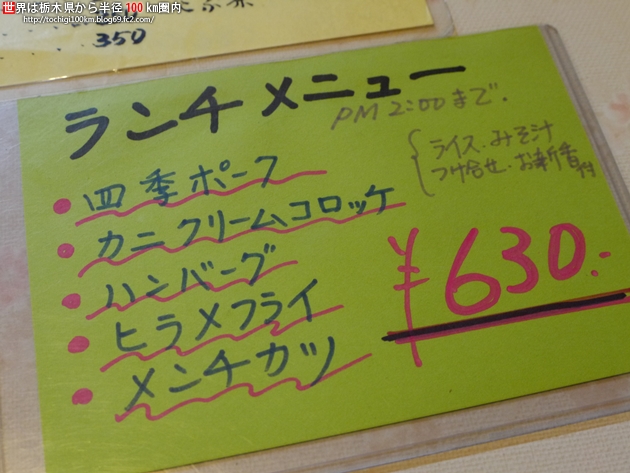 世界は栃木県から半径100km圏内
http://tochigi100km.blog69.fc2.com/
350
ランチメニュー
PM 2:00まで.
ライス・みそ汁
つけ合せ・お新香付
・四季ポーク
・カニクリームコロッケ
・ハンバーグ
・ヒラメフライ
・メンチカツ
¥630.-